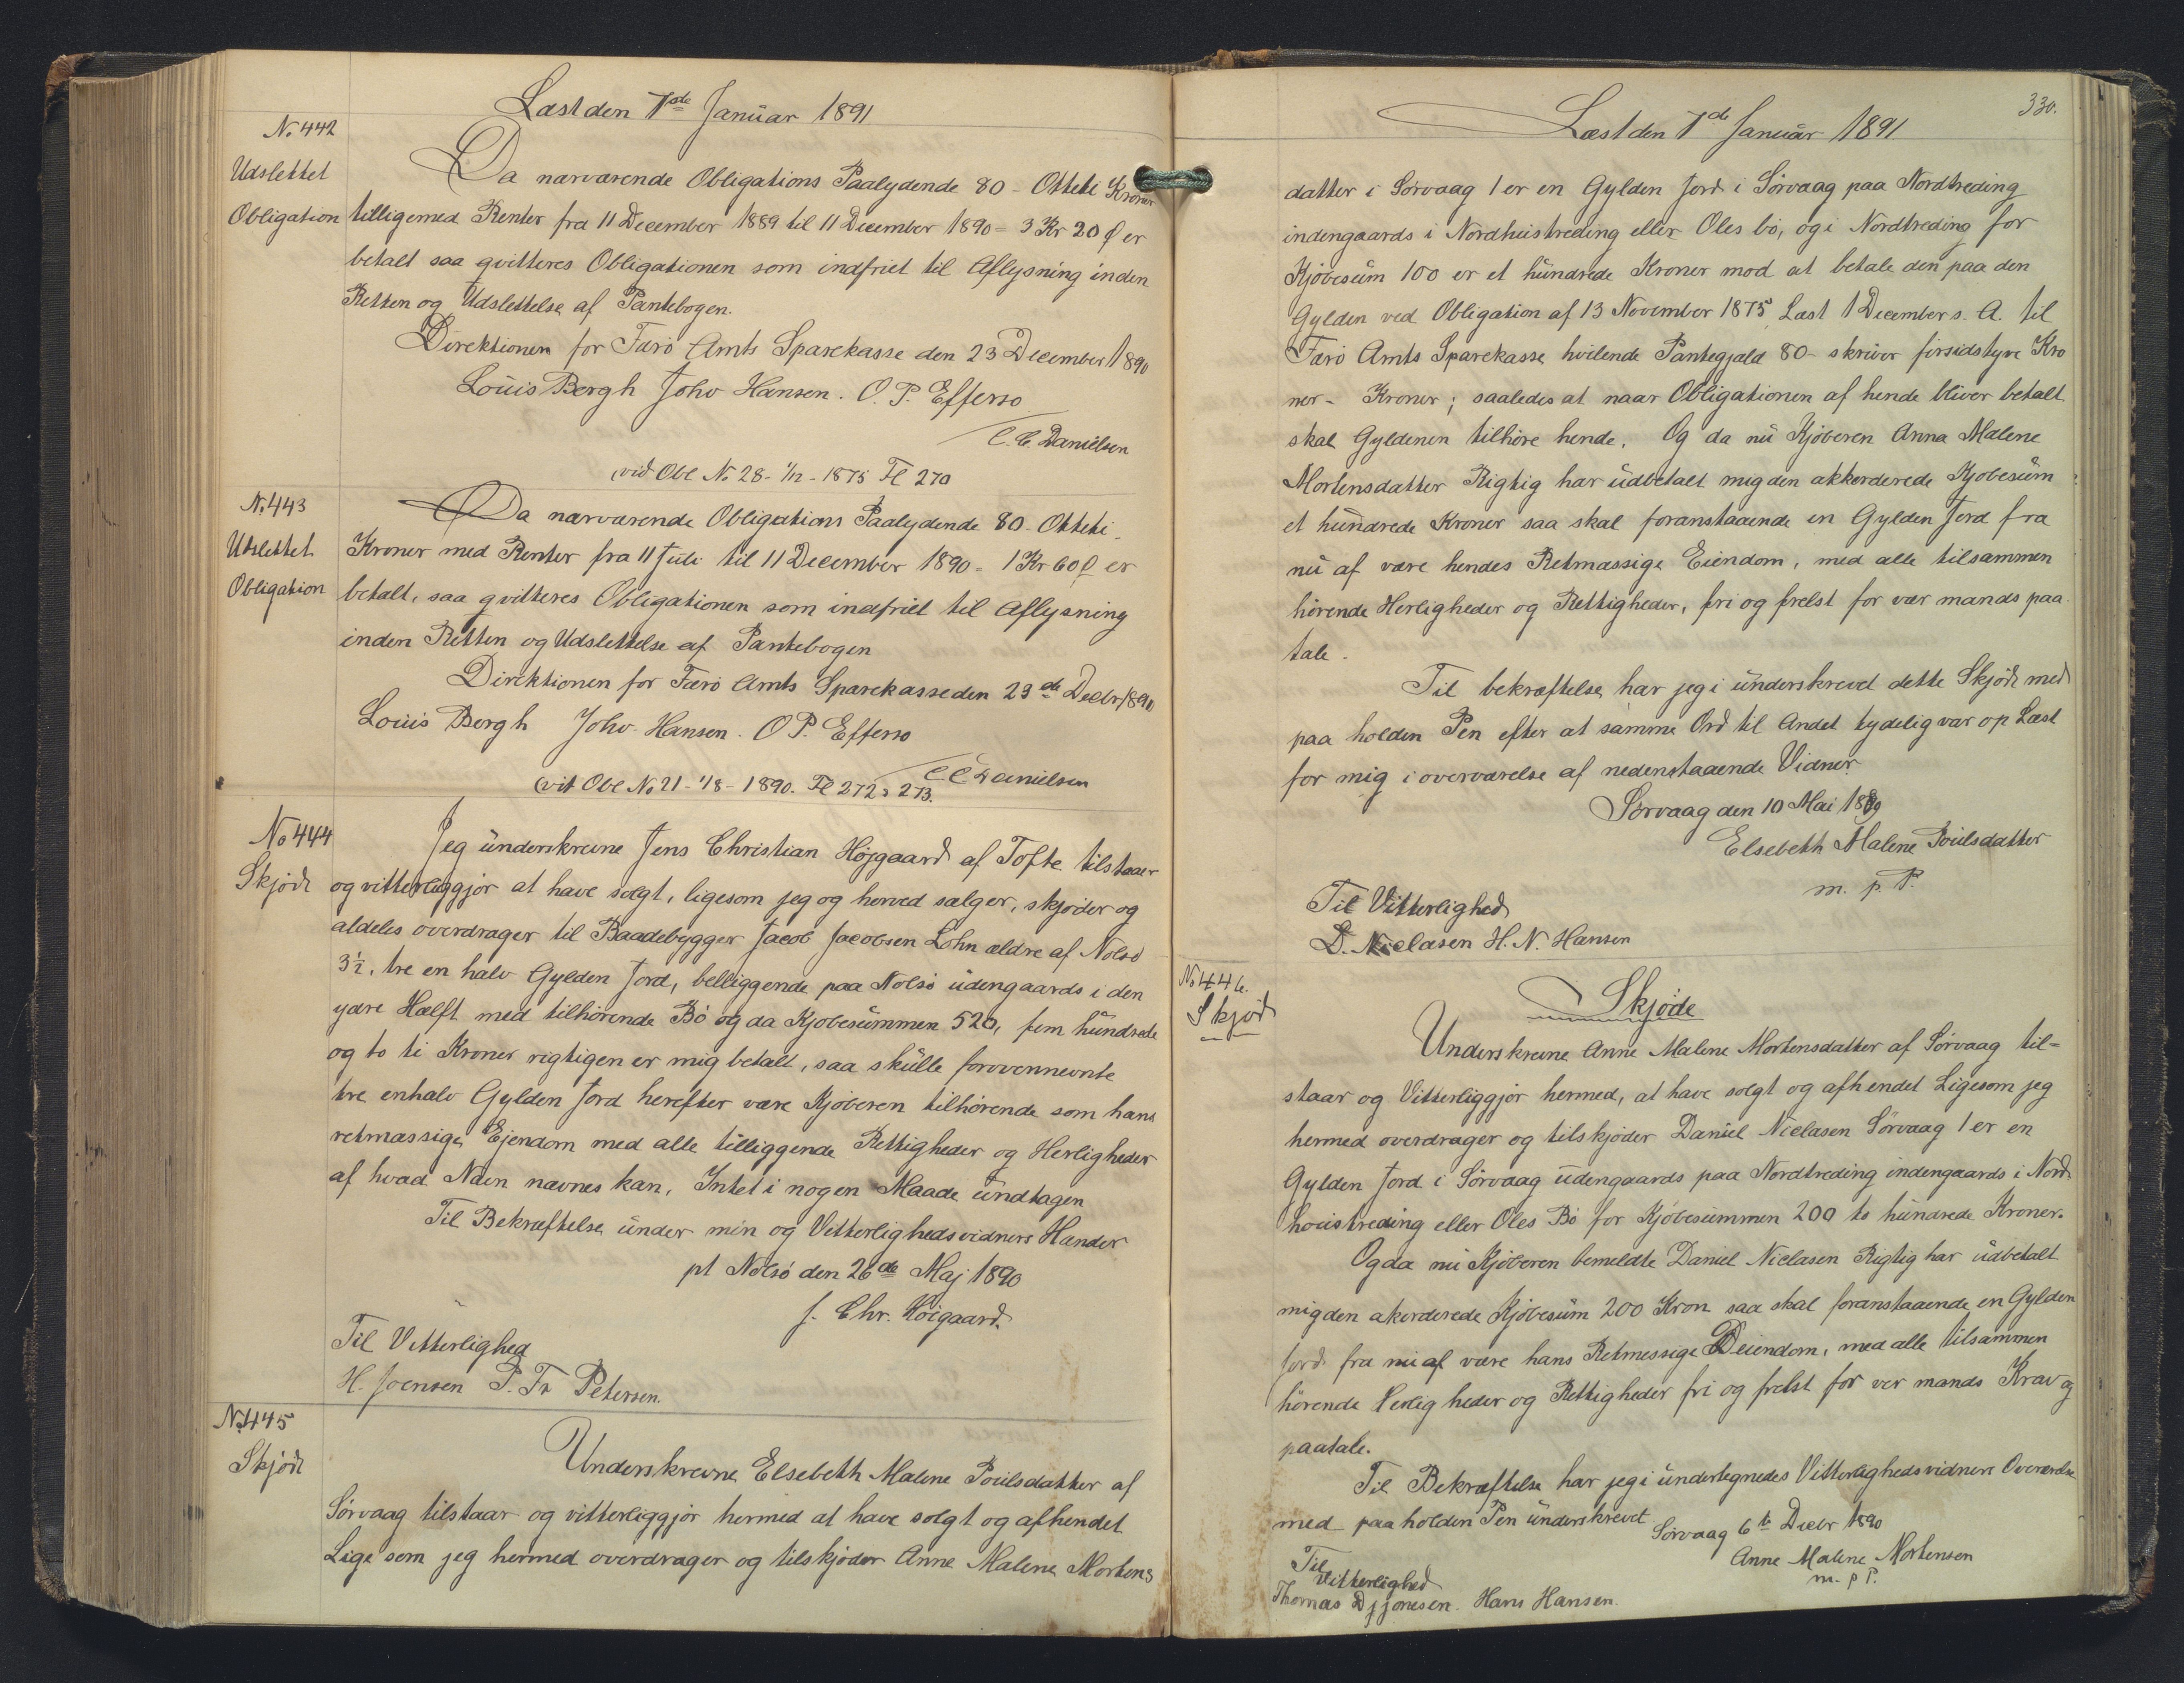 Læst den 7de Januar 1891
No 442
Udslettet
Obligation
Da nærværende Obligations Paalydende 80 - Otteti Kroner
tilligemed Renter fra 11 December 1889 til 11 December 1890 = 3 Kr 20 Ø er
betalt saa qvitteres Obligationen som indfriet til Aflysning inden
Retten og Udslettelse af Pantebogen.
Direktionen for Færø Amts Sparekasse den 23 December 1890
Louis Bergh Johs Hansen. O. P. Effersø
C. C. Danielsen
vid Obl No 28 - 1/12 - 1875 Fl 270
No 443
Udslettet
Obligation
Da nærværende Obligations Paalydende 80 - Otteti -
Kroner med Renter fra 11 Juli til 11 December 1890 = 1 Kr 60 Ø er
betalt, saa qvitteres Obligationen som indfriet til Aflysning
inden Retten og Udslettelse af Pantebogen
Direktionen for Færø Amts Sparekasse den 23de Decbr 1890
Louis Bergh Johs. Hansen. O P. Effersø
C C Danielsen
vid Obl No 21 - 1/8 - 1890. Fl 272 & 273.
No 444
Skjøde
Jeg underskrevne Jens Christian Højgaard af Tofte tilstaaer
og vitterliggjør at have solgt, ligesom jeg og herved sælger, skjøder og
aldeles overdrager til Baadebygger Jacob Jacobsen Lohn ældre af Nolsø
3½, tre en halv Gylden Jord, belliggende paa Nolsø udengaards i den
ydre Hælft med tilhørende Bø og da Kjøbesummen 520, fem hundrede
og to ti Kroner rigtigen er mig betalt, saa skulle forovennevnte
tre enhalv Gylden Jord herefter være Kjøberen tilhørende som hans
retmæssige Ejendom med alle tilliggende Rettigheder og Herligheder
af hvad Navn nævnes kan, Intet i nogen Maade undtagen
Til Bekræftelse under min og Vitterlighedsvidners Hænder
pt Nolsø den 26de Maj 1890
J. Chr. Høigaard.
Til Vitterlighed
H. Joensen P. Fr Petersen.
No 445
Skjøde
Underskrevne Elsebeth Malene Poulsdatter af
Sørvaag tilstaar og vitterliggjør hermed at have solgt og afhendet
Lige som jeg hermed overdrager og tilskjøder Anne Malene Mortens
330.
Læst den 7de Januar 1891
datter i Sørvaag 1 er en Gylden Jord i Sørvaag paa Nordtreding
indengaards i Nordhustreding eller Oles bø, og i Nordtreding for
Kjøbesum 100 er et hundrede Kroner mod at betale den paa den
Gylden ved Obligation af 13 November 1875, Læst 1 December s. A. til
Færø Amts Sparekasse hvilende Pantegjæld 80 - skriver firsidstyve Kro
ner - Kroner; saaledes at naar Obligationen af hende bliver betalt
skal Gyldenen tilhøre hende. Og da nu Kjøberen Anna Malene
Mortensdatter Rigtig har udbetalt mig den akkorderede Kjøbesum
et hundrede Kroner saa skal foranstaaende en Gylden Jord fra
nu af være hendes Retmæssige Eiendom, med alle tilsammen
hørende Herligheder og Rettigheder, fri og frelst for vær mands paa
tale.
Til bekræftelse har jeg i underskrevet dette Skjøde med
paa holden Pen efter at samme Ord til Andet tydelig var op Læst
for mig i overværelse af nedenstaaende Vidner.
Sørvaag den 10 Mai
Elsebeth Malene Poulsdatter
m. p. P.
Til Vitterlighed
D. Niclasen H. N. Hansen
No 446.
Skjøde
Skjøde
Underskrevne Anne Malene Mortensdatter af Sørvaag til=
staar og Vitterliggjør hermed, at have solgt og afhendet Ligesom jeg
hermed overdrager og tilskjøder Daniel Niclasen Sørvaag 1 er en
Gylden Jord i Sørvaag udengaards paa Nordtreding indengaards i Nord-
houstreding eller Oles Bø for Kjøbesummen 200 to hundrede Kroner.
Og da nu Kjøberen bemeldte Daniel Niclasen Rigtig har udbetalt
mig den akorderede Kjøbesum 200 Kron saa skal foranstaaende en Gylden
Jord fra nu af være hans Retmessige Eiendom, med alle tilsammen
hørende Herlig heder og Rettigheder fri og frelst for ver mands Krav og
paatale.
Til Bekræftelse har jeg i undertegnedes Vitterlighedsvidners Overværelse
med paa holden Pen underskrevet
Sørvaag 6te Decbr 1890
Anne Malene Mortensen
m. p P.
Til
Vitterlighed
Thomas Hans Hansen.